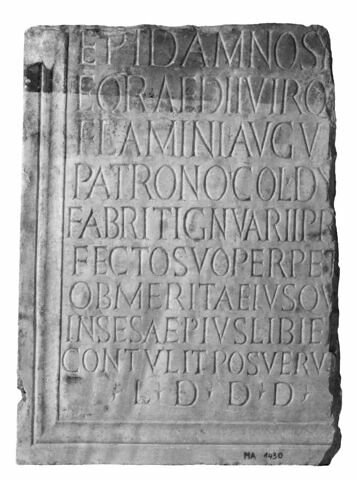 EPIDAMNOS
EQRAEDIIVIRQ
FLAMINIAVGV
PATRONOCOLDY
FABRITIGNVARIIPR
FECTOSVOPERPET
OBMERITAEIVSQV
INSESAEPIVSLIBE
CONTVLITPOSVERV
L·D·D·D·
MA 1430